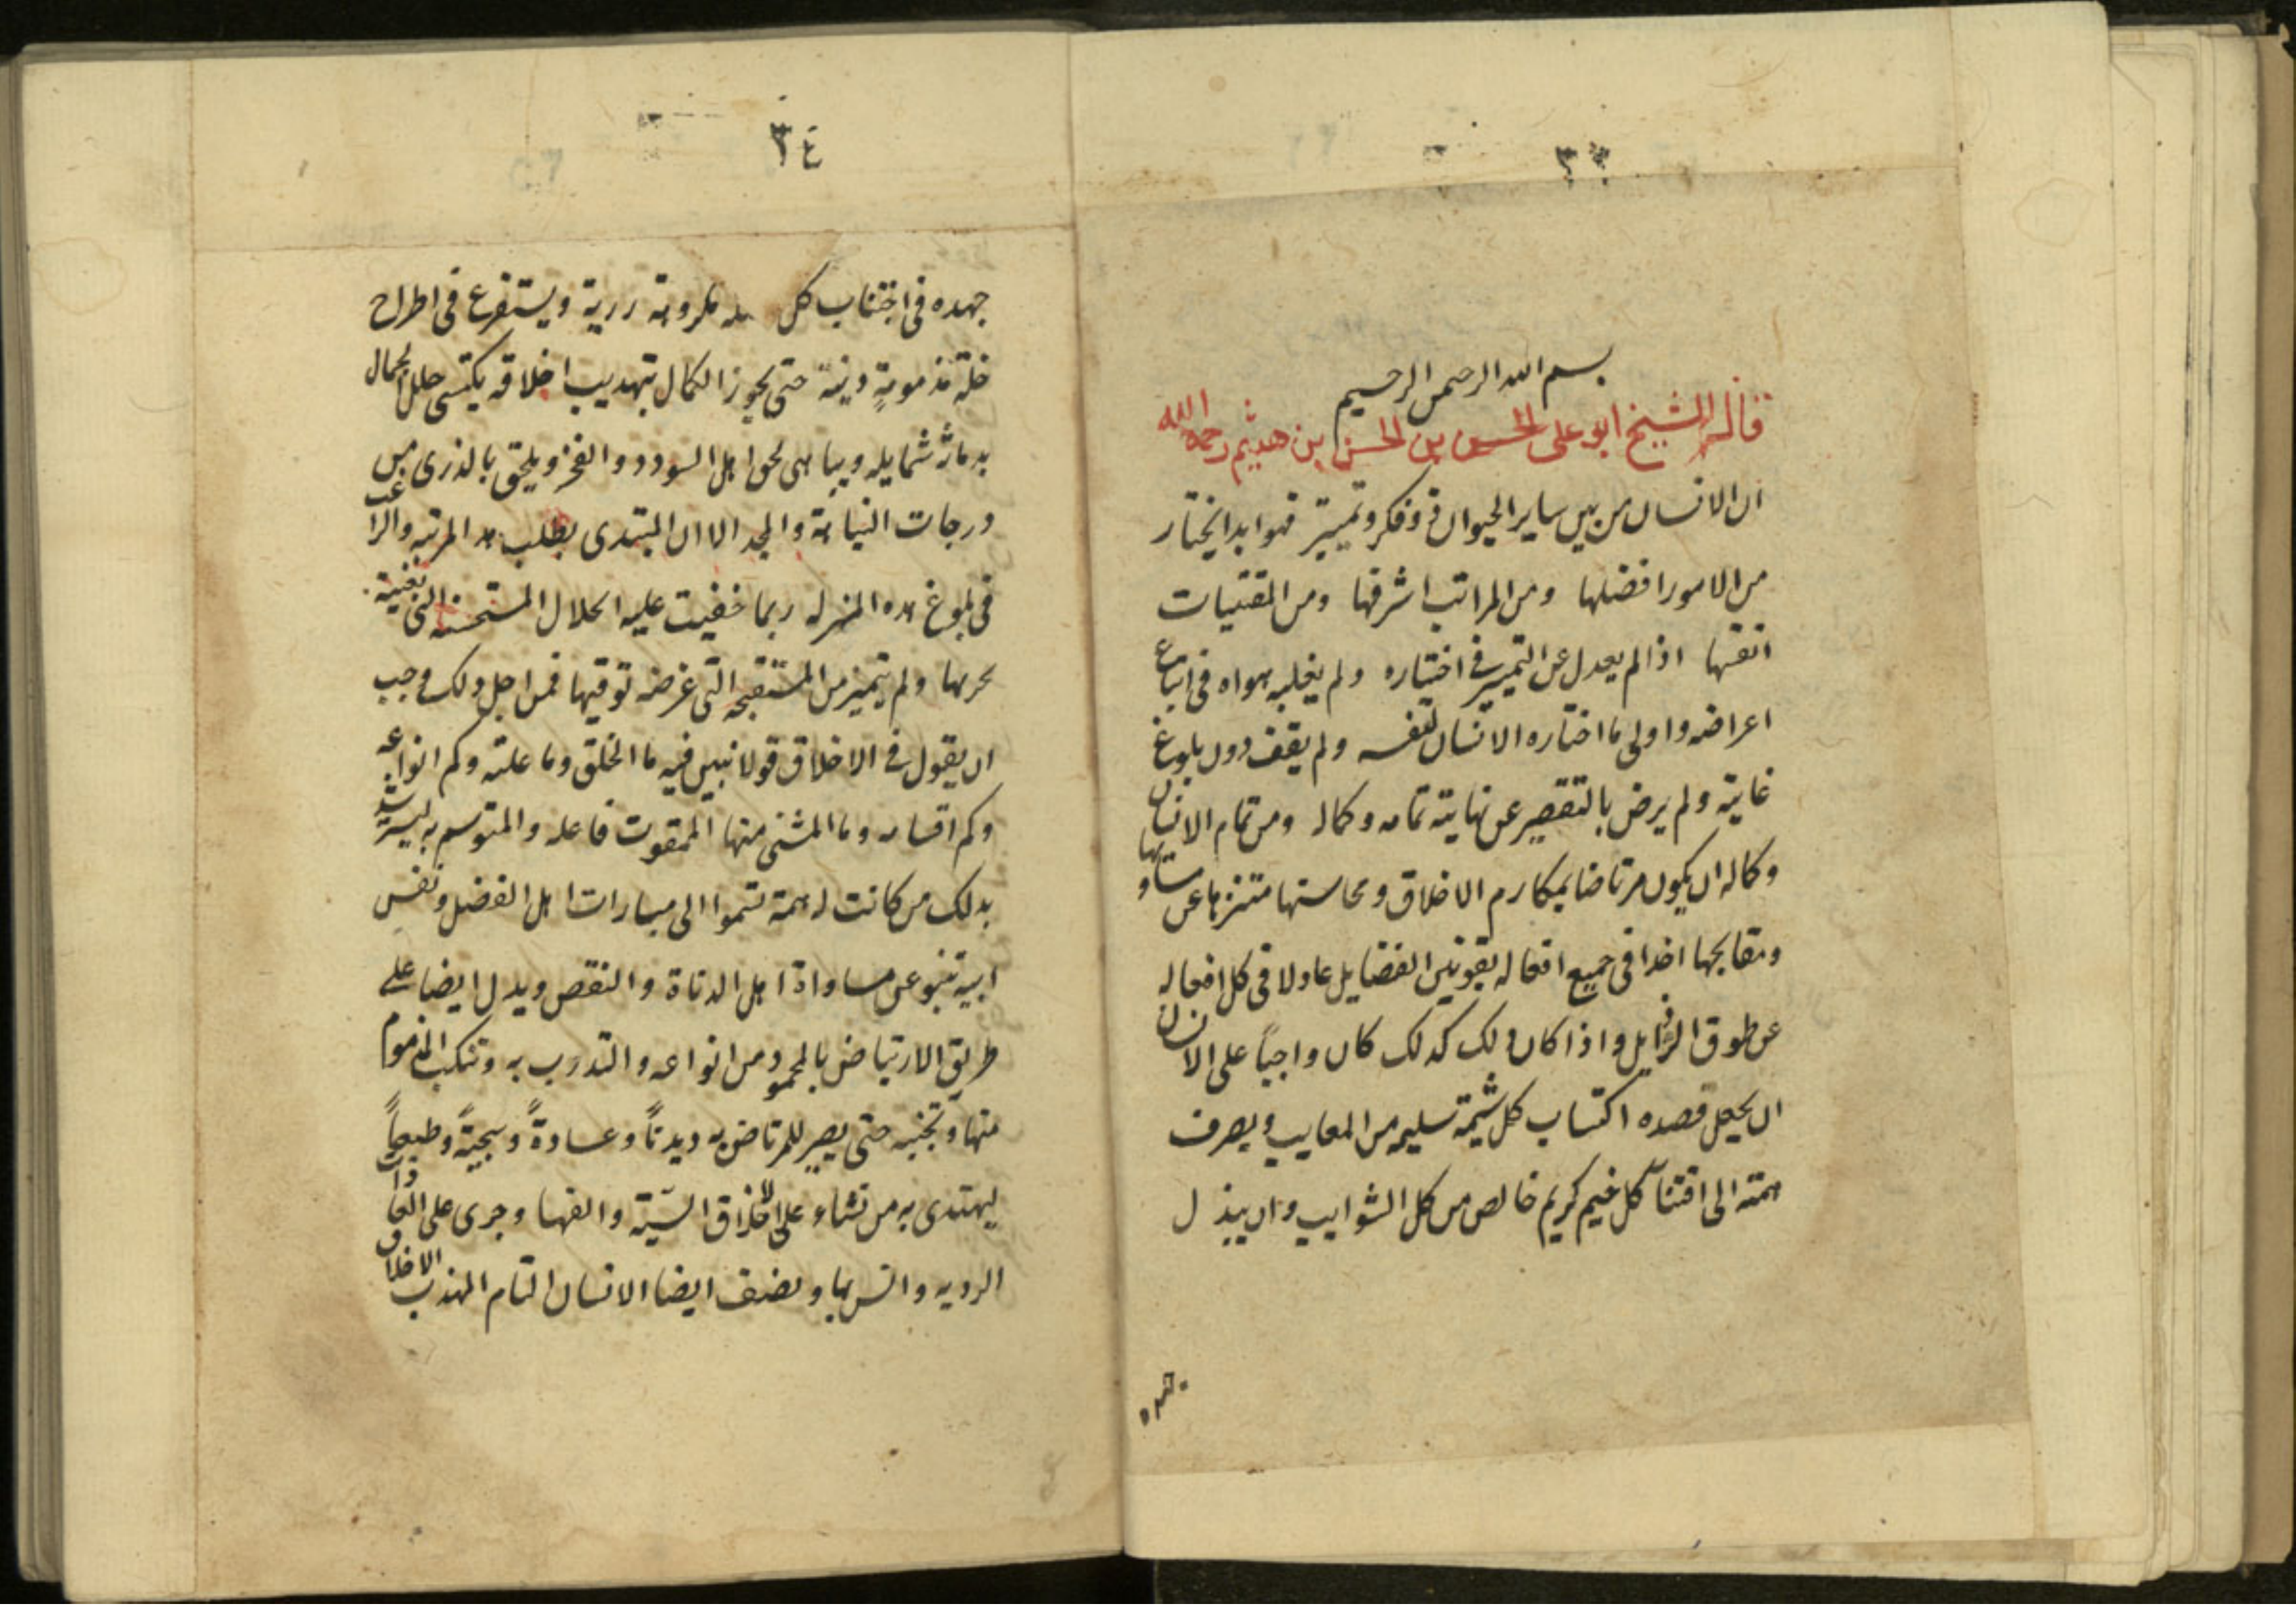 ٣٣
بسم الله الرحمن الرحيم
قال الشيخ ابو على الحسن بن الحسن بن هيثم رحمه الله
ان الانسان من بين ساير الحيوان ذو فكر وتمييز فهو ابدا يختار
من الامور افضلها ومن المراتب اشرفها ومن المقتنيات
انفسها اذا لم يعدل عن التمييز في اختياره ولم يغلبه هواه في اتباع
اعراضه واولى ما اختاره الانسان لنفسه ولم يقف دون بلوغ
غايته ولم يرض بالتقصير عن نهايته تمامه وكماله ومن تمام الانسان
وكماله ان يكون مرتاضا بمكارم الاخلاق ومحاسنها متنزها عن مساويها
ومقابحها اخذا في جميع افعاله بقوانين الفضايل عادلا في كل افعاله
عن طرق الرذايل واذا كان ذلك كذلك كان واجباً على الانسان
ان يجعل قصده اكتساب كل شيمة سليمه من المعايب ويصرف
همته الى اقتناء كل خيم كريم خالص من كل الشوايب وان يبذل
جهده
٣٤
جهده في اجتناب كل مكروهة ردية ويستفرغ في اطراح
خلة مذمومةٍ دنية حتى يحوز الكمال بتهذيب اخلاقه يكتسى حلل الجمال
بدماثة شمايله ويباهى بحق اهل السودد والفخر ويلحق بالذرى من
درجات النباهة والمجد الا ان المبتدى بطلب هذه المرتبه والراغب
في بلوغ هذه المنزله ربما خفيت عليه الخلال المستحسنه التى تغنيه
تحريها ولم يتميز من المستقبحه التى غرضه توقيها فمن اجل ذلك وجب
ان يقول في الاخلاق قولا نبين فيه ما الخلق وما علته وكم انواعه
وكم اقسامه وما المشنى منها الممقوت فاعله والمتوسم به ليسترشد
بذلك من كانت له همة تسموا الى مبارات اهل الفضل ونفس
ابية تنبو عن مساواة اهل الدناة والنقص ويدل ايضا على
طريق الارتياض بالمحمود من انواعه والتدرب به وتنكب المذموم
منها وتجنبه حتى يصير للمرتاض به ديدناً وعادةً وسجيةً وطبعاً
ليهتدى به من نشاء على الاخلاق السيّئة والفها وجرى على العادات
الرديه وانس بها ويصف ايضا الانسان التام المهذب الاخلاق